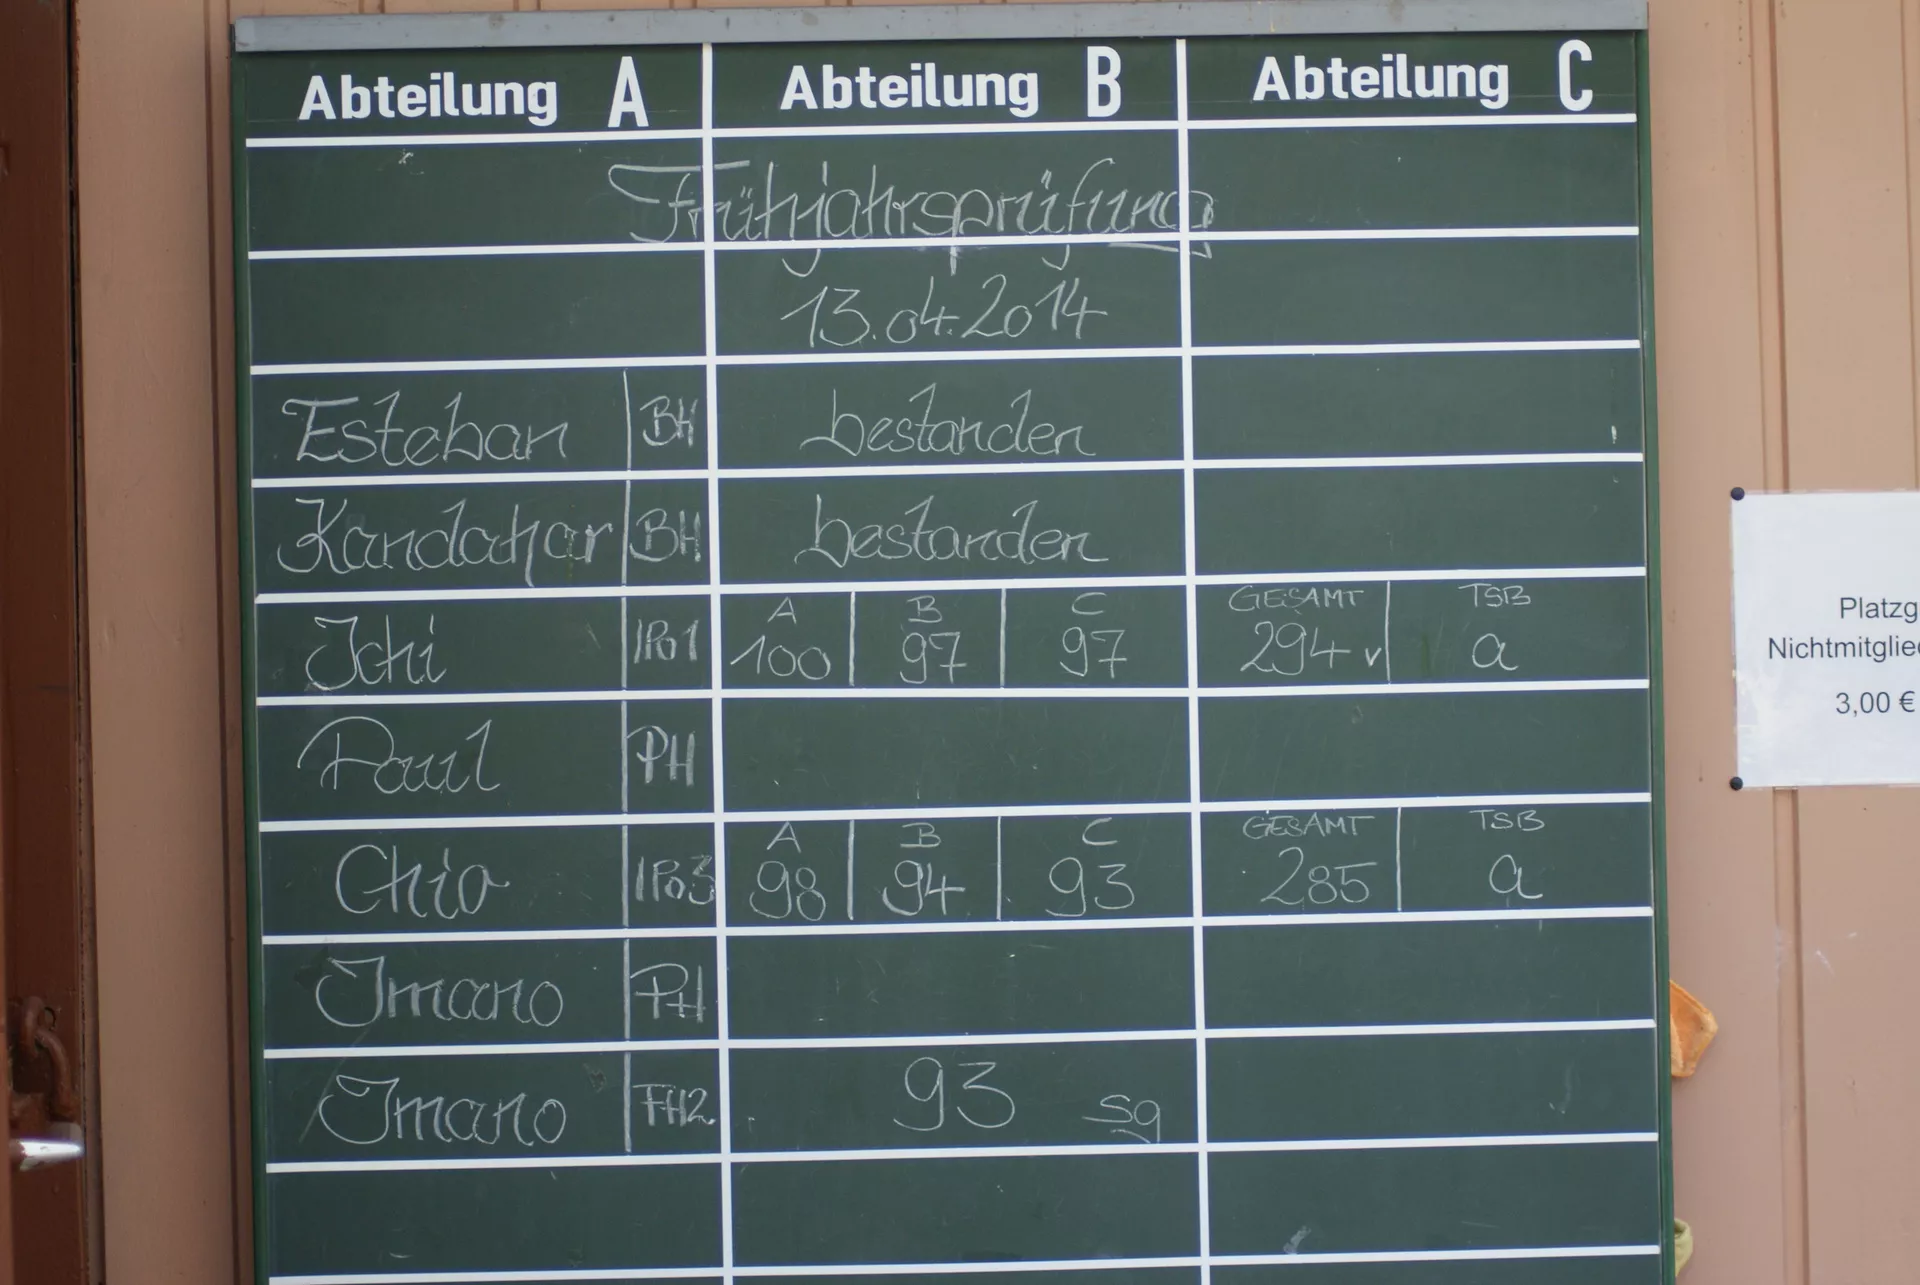 Abteilung A Abteilung B Abteilung C
Frühjahrsprüfung
13.04.2014
Esteban BH bestanden
Kandahar BH bestanden
A B C GESAMT TSB
Ichi IPo1 100 97 97 294 v a
Paul PH
A B C GESAMT TSB
Chio IPo3 98 94 93 285 a
Imano PH
Imano FH2 93 sg
Platzg
Nichtmitglie
3,00 €